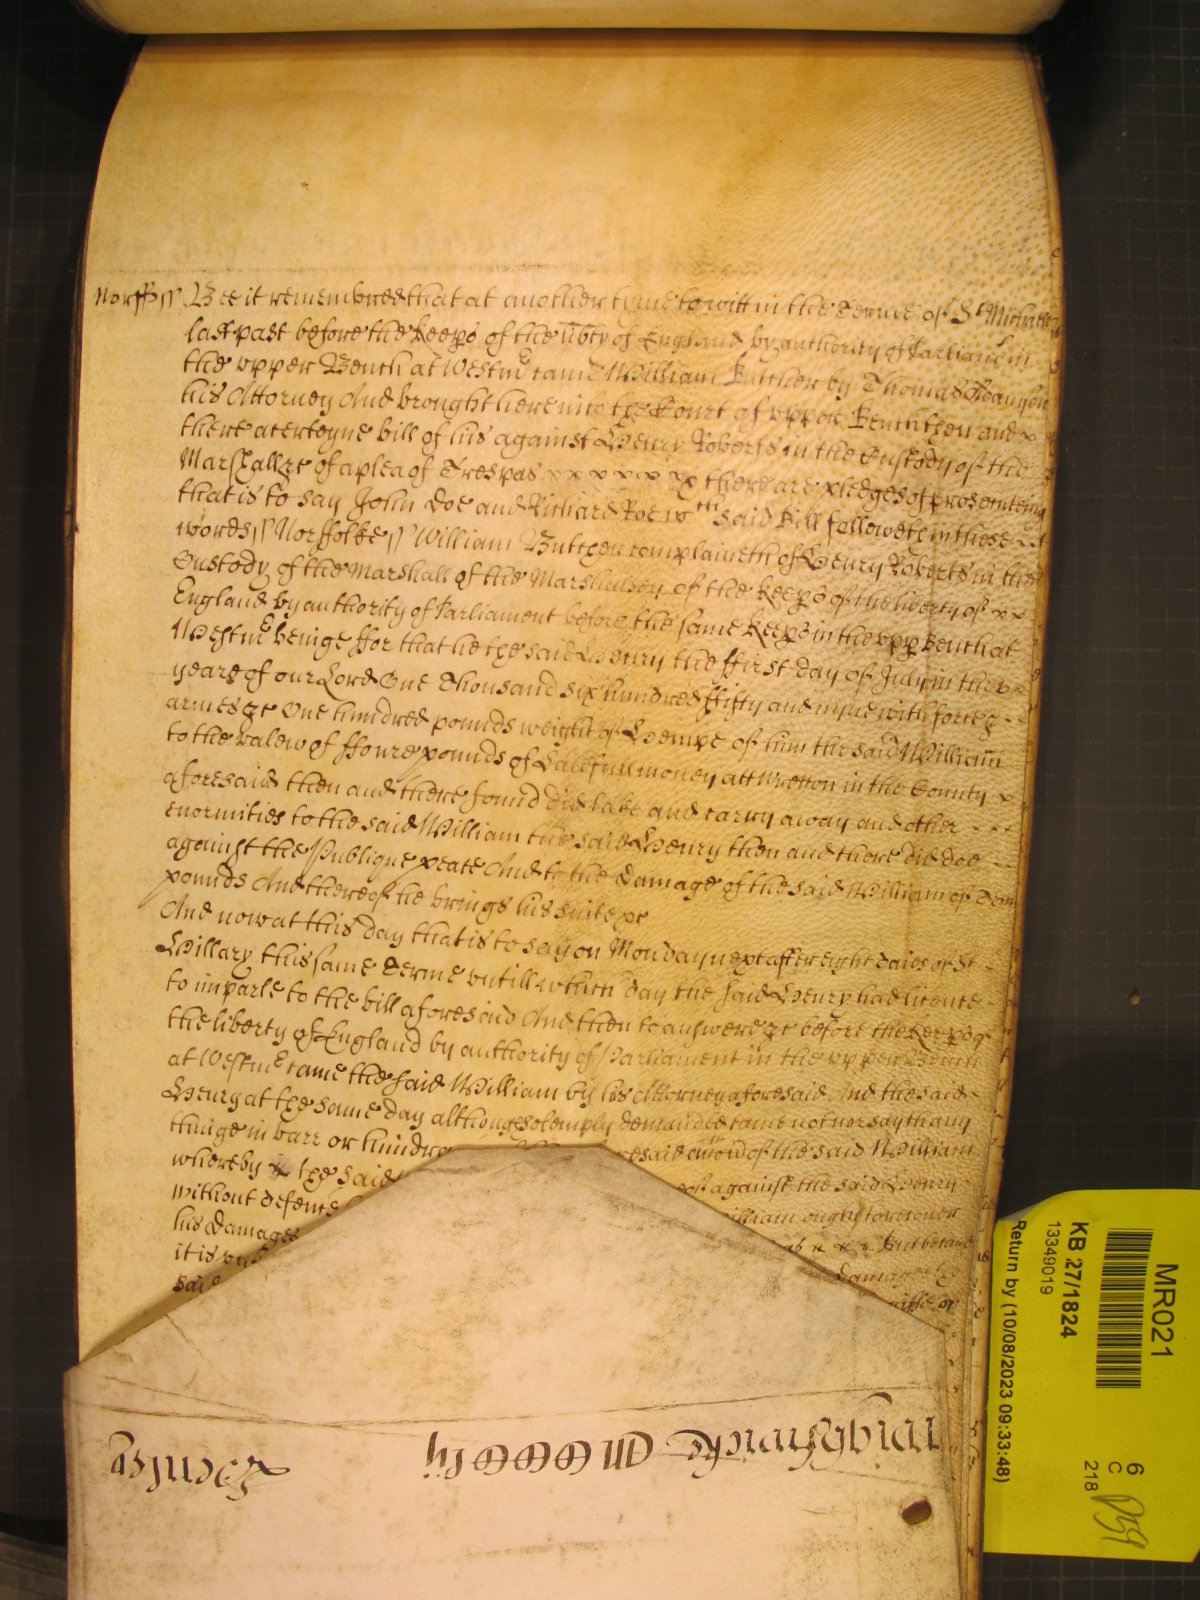 Norff ss Bee it remembred that at another tyme to witt in the Terme of St Michaell
last past before the Keeps of the libty of England by authority of Parliamt in
the upper Bench at Westm came William Butcher by Thomas
his Attorney And brought here into the Court of upper Bench then and x
there a certeyne bill of his against Henry Roberts in the Custody of the
Marshall &c of a plea of Trespas x x x x x x x there are pledges of prosecuteing
that is to say John Doe and Richard Roe wch said Bill followeth in these
words ss Norffolke ss William Butcher complaineth of Henry Roberts in the
Custody of the Marshall of the Marshalsey of the Keeps of the liberty of x x
England by authority of Parliament before the same Keeps in the upp Bench at
Westm beinge ffor that he the said Henry the ffirst day of July in the
yeare of our Lord One Thousand six hundred ffifty and nyne with force &
armes &c One hundred pounds weight of Hempe of him the said William
to the valew of ffoure pounds of Lawfull money att Wretton in the County x
aforesaid then and there found did take and carry away and other
enormities to the said William the said Henry then and there did doe
against the Publique peace And to the damage of the said William of Tenn
pounds And thereof he brings his suite &c
And now at this day that is to say on Monday next after eight daies of St
Hillary this same Terme untill which day the said Henry had licence
to imparle to the bill aforesaid And then to answere &c before the Keeps of
the liberty of England by authority of Parliament in the upper Bench
at Westm came the said William by his Attorney aforesaid And the said
Henry at the same day although solemply demanded came not nor say thany
thinge in barr or hindra resaid accion of the said William
whereby the said against the said Henry
without defence illiam ought to recover
his damages But because
it is damages
said
MR021
KB 27/1824
13349019
Return by (10/08/2023 09:33:48)
6
C
218